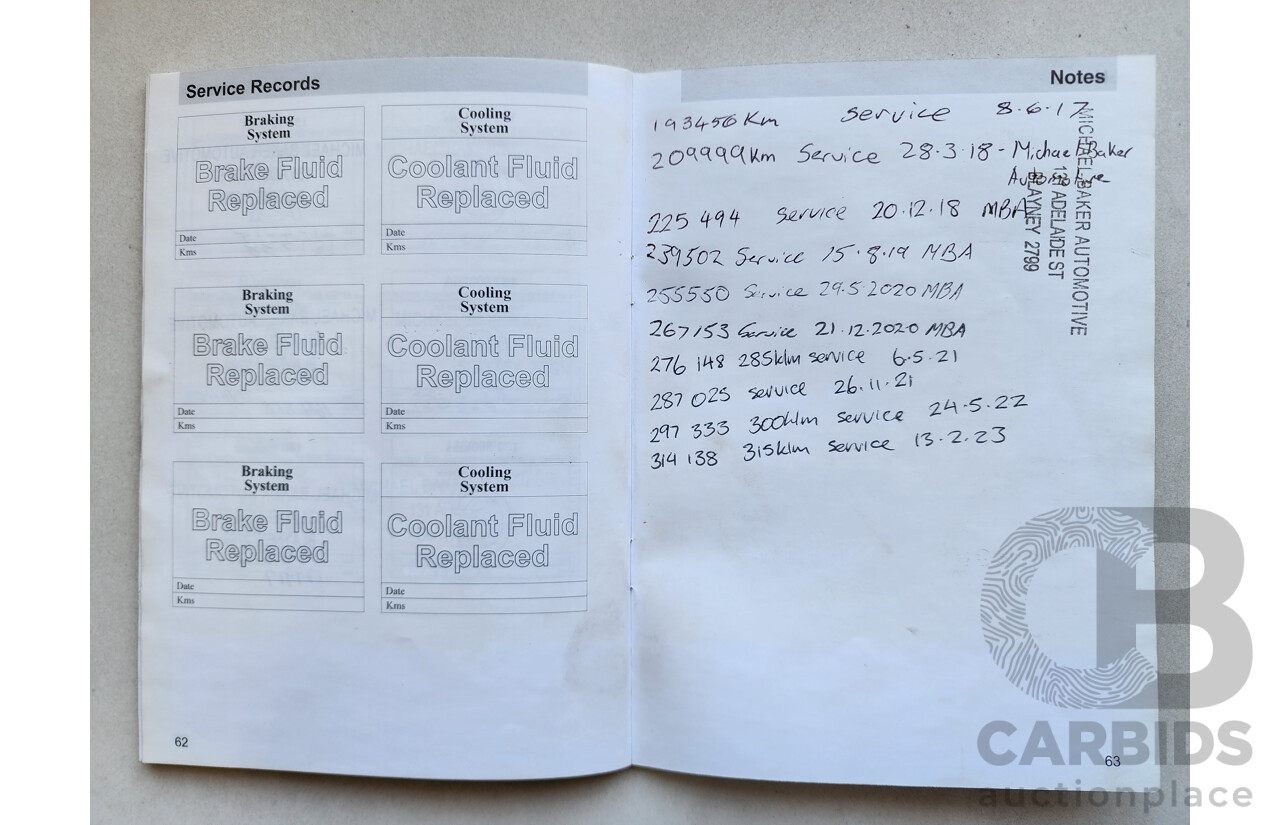 Service Records
Braking
System
Brake Fluid
Replaced
Date
Kms
Cooling
System
Coolant Fluid
Replaced
Date
Kms
Braking
System
Brake Fluid
Replaced
Date
Kms
Cooling
System
Coolant Fluid
Replaced
Date
Kms
Braking
System
Brake Fluid
Replaced
Date
Kms
Cooling
System
Coolant Fluid
Replaced
Date
Kms
62
Notes
193456 Km Service 8.6.17
209999 Km Service 28.3.18 - Michael Baker
Automotive
225 494 Service 20.12.18 MBA
239502 Service 15.8.19 MBA
255550 Service 29.5.2020 MBA
267153 Service 21.12.2020 MBA
276 148 285klm service 6.5.21
287 025 service 26.11.21
297 333 300klm service 24.5.22
314 138 315klm service 13.2.23
MICHAEL BAKER AUTOMOTIVE
ADELAIDE ST
BLAYNEY 2799
63
CB
CARBIDS
auctionplace